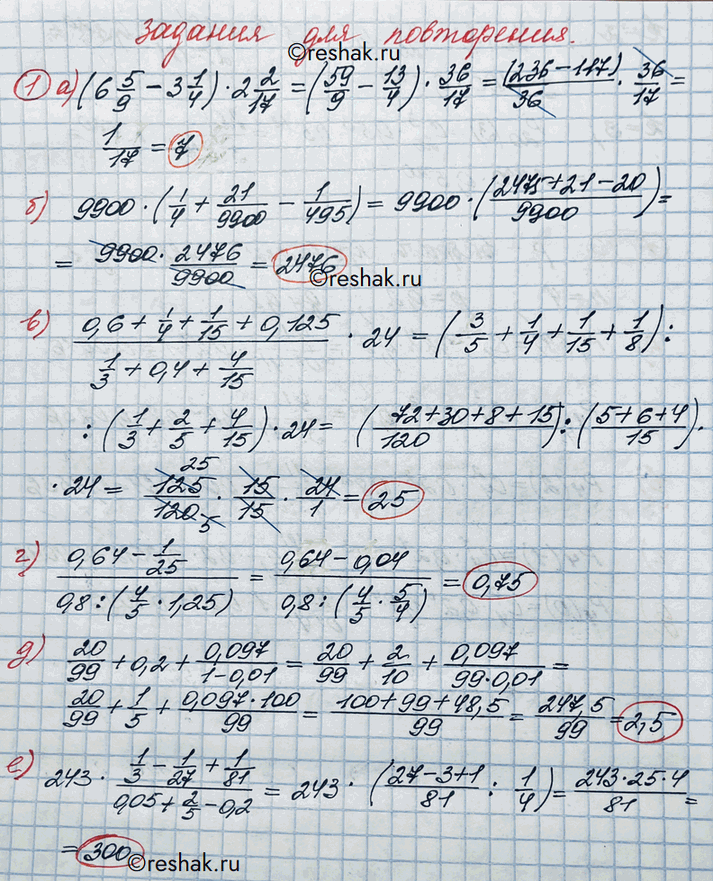 Задания для повторения.
©reshak.ru
1 а) (6 5/9 − 3 1/4) · 2 2/17 = (59/9 − 13/4) · 36/17 = (236−117)/36 · 36/17 =
1/17 = 7
б) 9900 · (1/4 + 21/9900 − 1/495) = 9900 · (2475+21−20)/9900) =
= 9900 · 2476/9900 = 2476
©reshak.ru
в) (0,6 + 1/4 + 1/15 + 0,125)/(1/3 + 0,4 + 4/15) · 24 = (3/5 + 1/4 + 1/15 + 1/8) :
: (1/3 + 2/5 + 4/15) · 24 = (72+30+8+15)/120) : (5+6+4)/15) ·
· 24 = 25 125/120 5 · 15/15 · 24/1 = 25
г) (0,64 − 1/25)/(0,8 : (4/5 · 1,25)) = (0,64 − 0,04)/(0,8 : (4/5 · 5/4)) = 0,75
д) 20/99 + 0,2 + 0,097/(1−0,01) = 20/99 + 2/10 + 0,097/(99·0,01) =
20/99 + 1/5 + (0,097·100)/99 = (100+99+48,5)/99 = 247,5/99 = 2,5
е) 243 · (1/3 − 1/27 + 1/81)/(0,05 + 2/5 − 0,2) = 243 · ((27−3+1)/81 : 1/4) = (243·25·4)/81 =
= 300
©reshak.ru